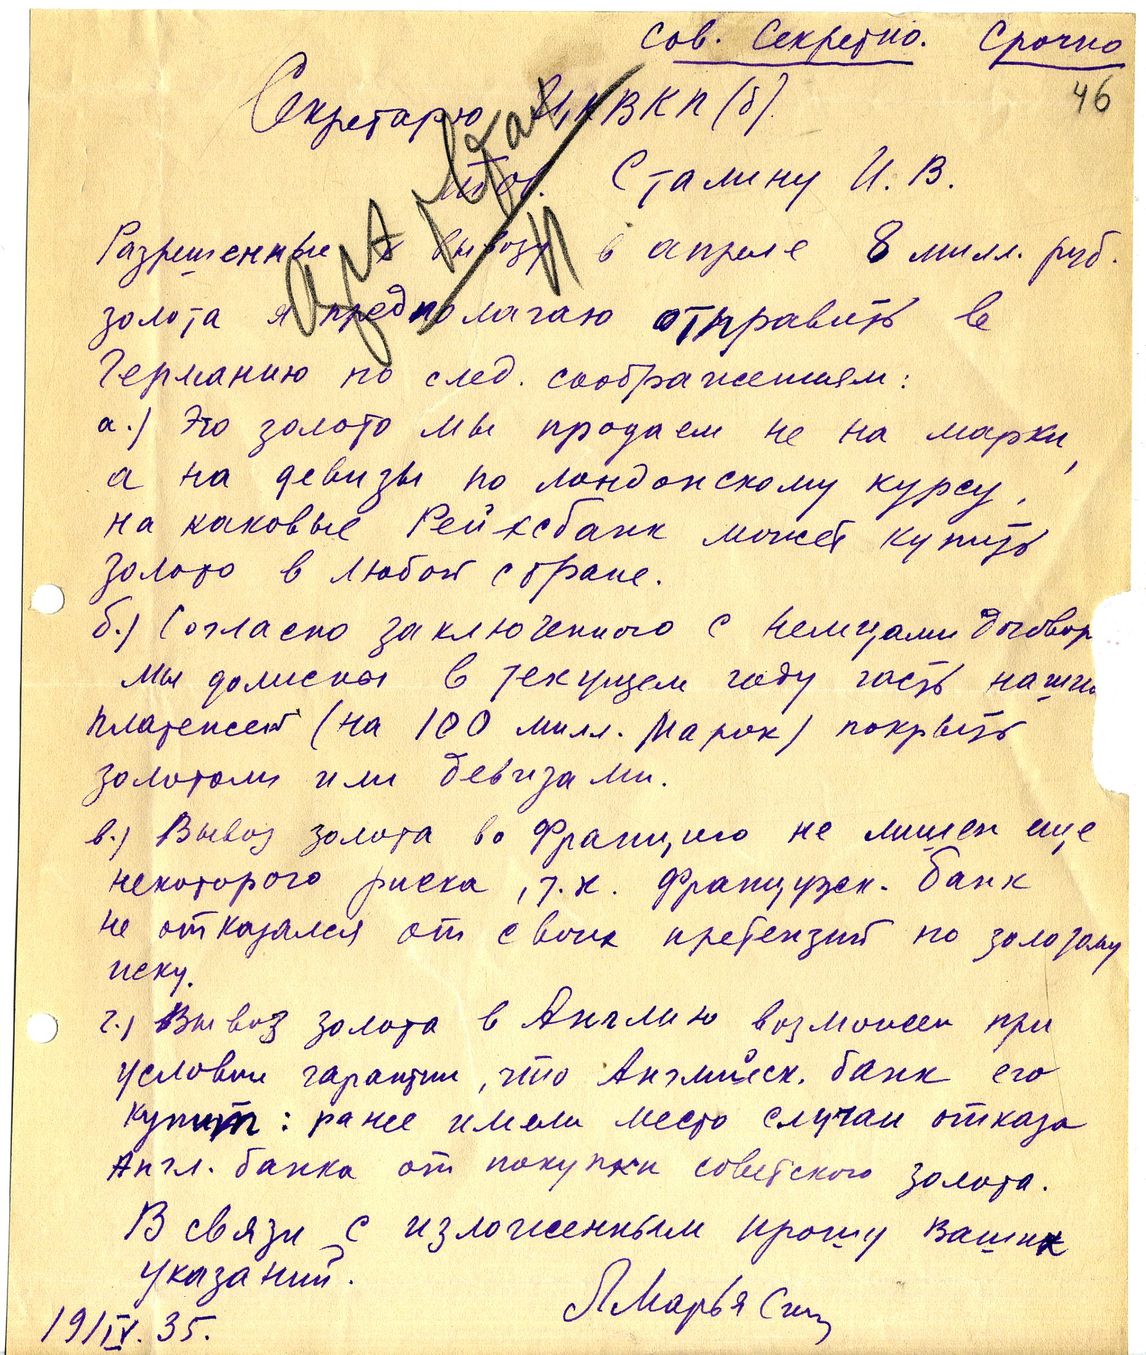 Сов. Секретно. Срочно
46
Секретарю ЦК ВКП(б).
тов. Сталину И. В.
Разрешенные к вывозу в апреле 8 милл. руб.
золота я предполагаю отправить в
Германию по след. соображениям:
а.) Это золото мы продаем не на марки,
а на девизы по лондонскому курсу,
на каковые Рейхсбанк может купить
золото в любой стране.
б.) Согласно заключенного с немцами договор
мы должны в текущем году часть наших
платежей (на 100 милл. марок) покрыть
золотом или девизами.
в.) Вывоз золота во Францию не лишен еще
некоторого риска, т.к. Французск. банк
не отказался от своих претензий по золотому
иску.
г.) Вывоз золота в Англию возможен при
условии гарантии, что Английск. банк его
купит: ранее имели место случаи отказа
Англ. банка от покупки советского золота.
В связи с изложенным прошу Ваших
указаний.
ЛМарьясин
19/IV. 35.